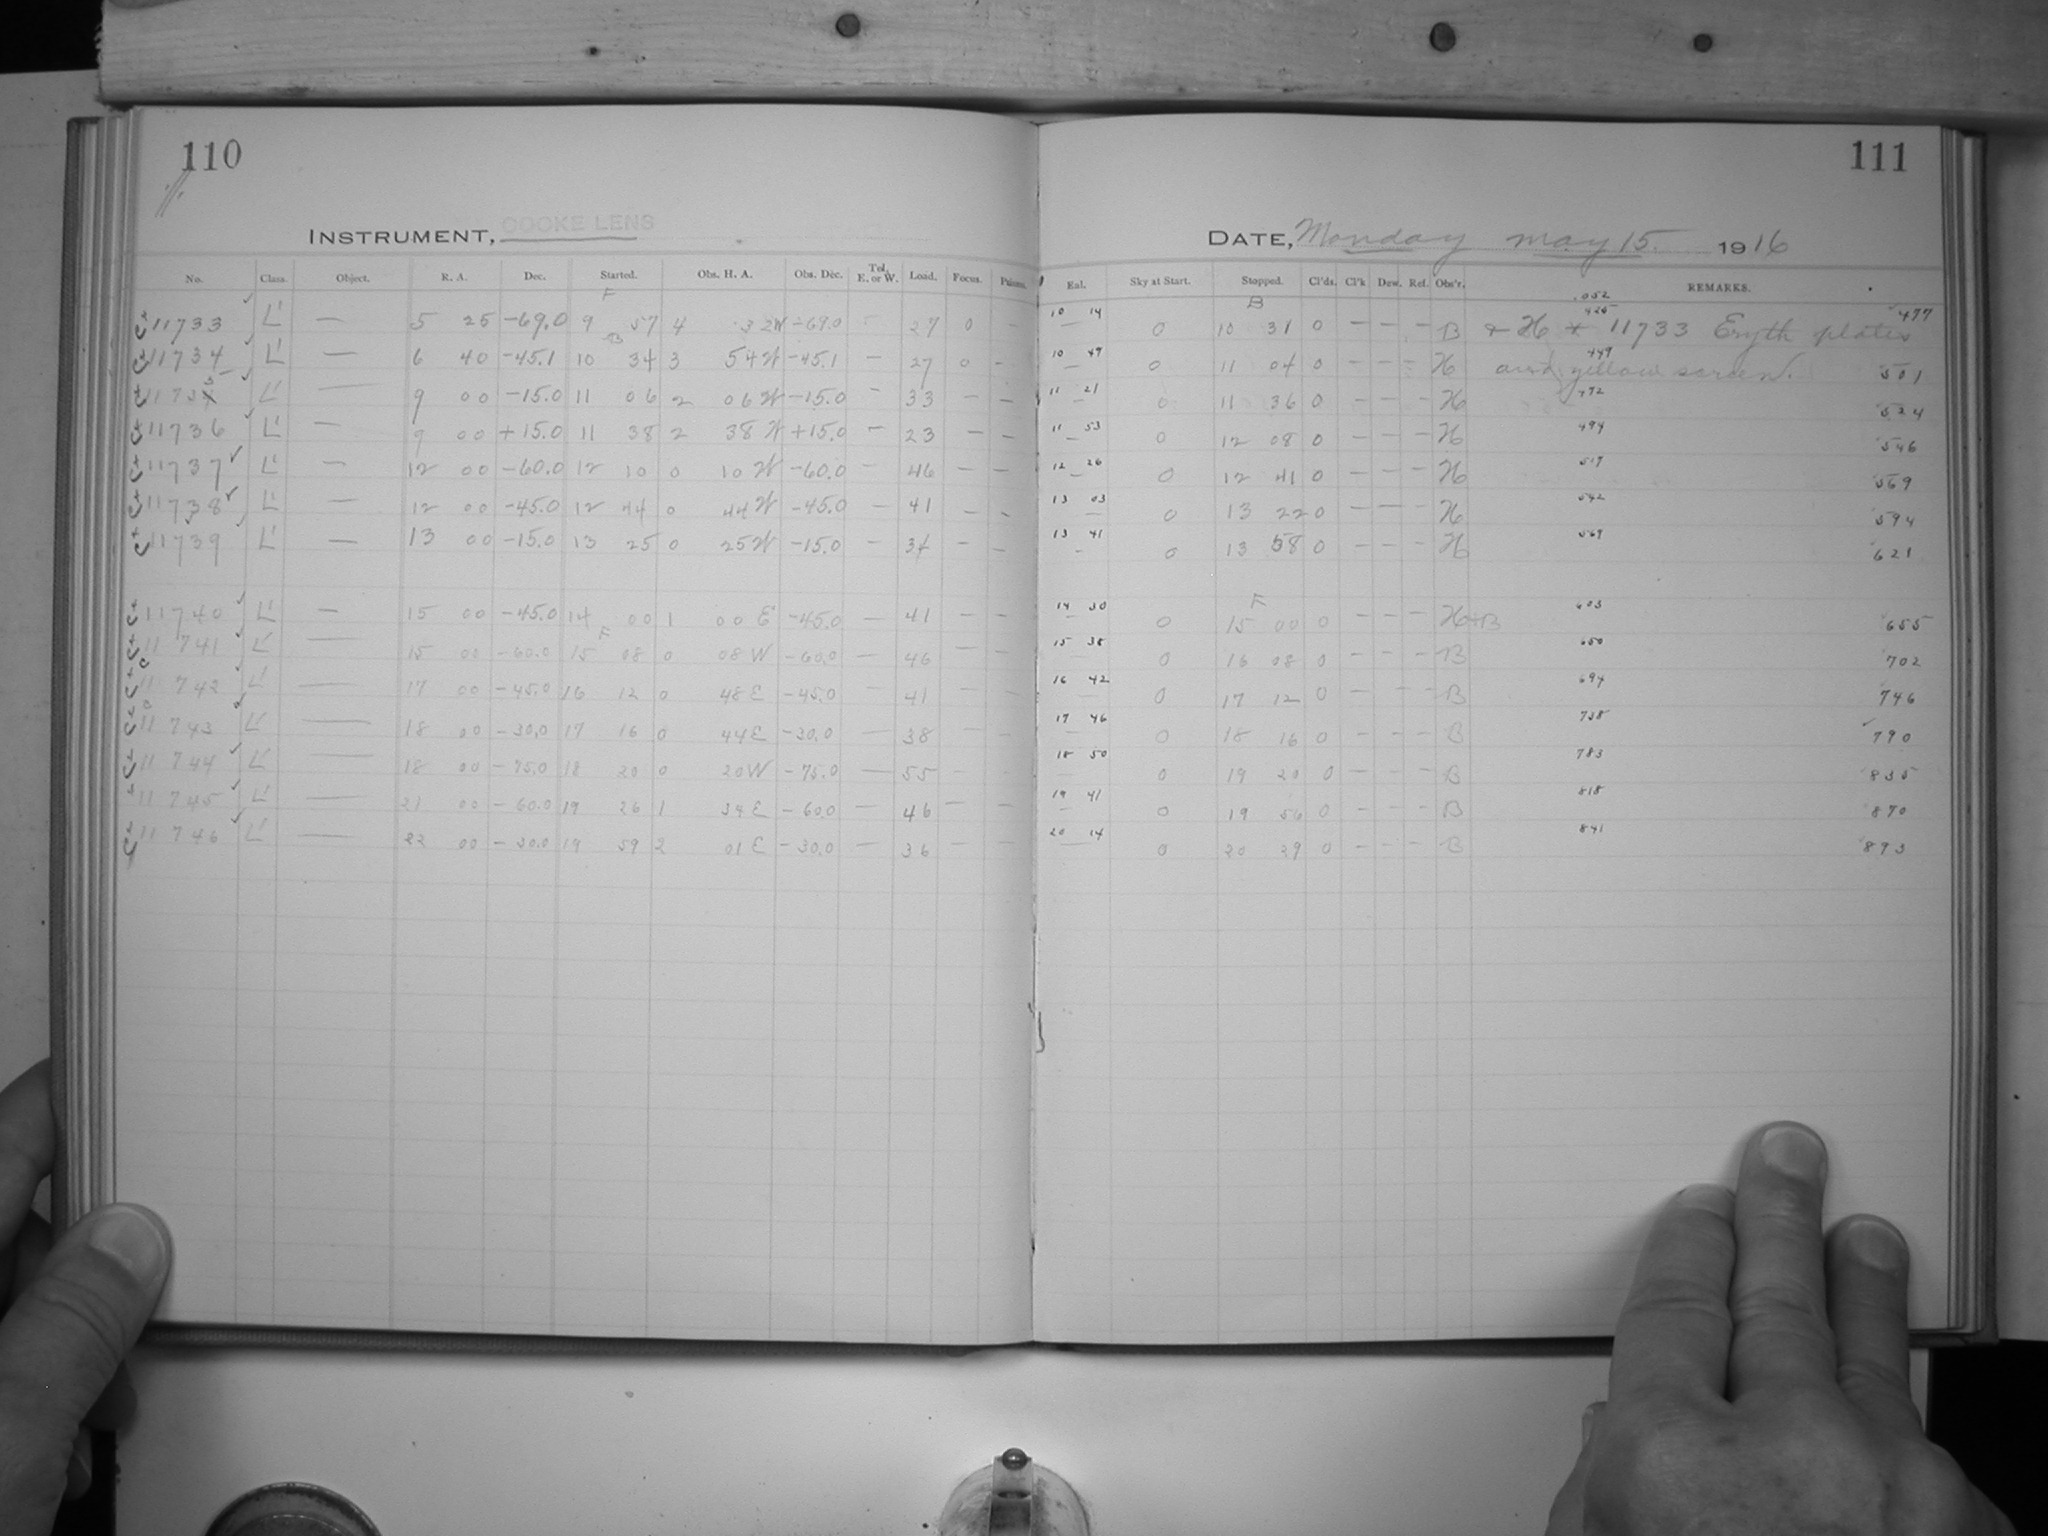 110
INSTRUMENT, COOKE LENS
No. Class. Object. R. A. Dec. Started. Obs. H. A. Obs. Dec. Tel. E. or W. Load. Focus.
F
11733 L' — 5 25 -69.0 9 57 4 32W -69.0 - 27 0 -
B
11734 L' — 6 40 -45.1 10 34 3 54W -45.1 - 27 0 -
11735 L' — 9 00 -15.0 11 06 2 06W -15.0 - 33 - -
11736 L' — 9 00 +15.0 11 38 2 38W +15.0 - 23 - -
11737 L' — 12 00 -60.0 12 10 0 10W -60.0 - 46 - -
11738 L' — 12 00 -45.0 12 44 0 44W -45.0 - 41 - -
11739 L' — 13 00 -15.0 13 25 0 25W -15.0 - 34 - -
11740 L' — 15 00 -45.0 14 00 1 00 E -45.0 - 41 - -
F
11741 L' — 15 00 -60.0 15 08 0 08W -60.0 - 46 - -
11742 L' — 17 00 -45.0 16 12 0 48E -45.0 - 41 - -
11743 L' — 18 00 -30.0 17 16 0 44E -30.0 - 38 - -
11744 L' — 18 00 -75.0 18 20 0 20W -75.0 - 55 - -
11745 L' — 21 00 -60.0 19 26 1 34E -60.0 - 46 - -
11746 L' — 22 00 -30.0 19 59 2 01E -30.0 - 36 - -
111
DATE, Monday May 15. 1916
Eal. Sky at Start. Stopped. Cl'ds. Cl'k Dew. Ref. Obs'r. REMARKS.
.052
B
10 14 0 10 31 0 - - - B + H * 11733 Eryth plates 425 477
10 49 0 11 04 0 - - - H and yellow screen. 449 501
11 21 0 11 36 0 - - - H 472 524
11 53 0 12 08 0 - - - H 494 546
12 26 0 12 41 0 - - - H 517 569
13 03 0 13 22 0 - - - H 542 594
13 41 0 13 58 0 - - - H 569 621
F
14 30 0 15 00 0 - - - H+B 603 655
15 38 0 16 08 0 - - - B 650 702
16 42 0 17 12 0 - - - B 694 746
17 46 0 18 16 0 - - - B 738 790
18 50 0 19 20 0 - - - B 783 835
19 41 0 19 56 0 - - - B 818 870
20 14 0 20 29 0 - - - B 841 893